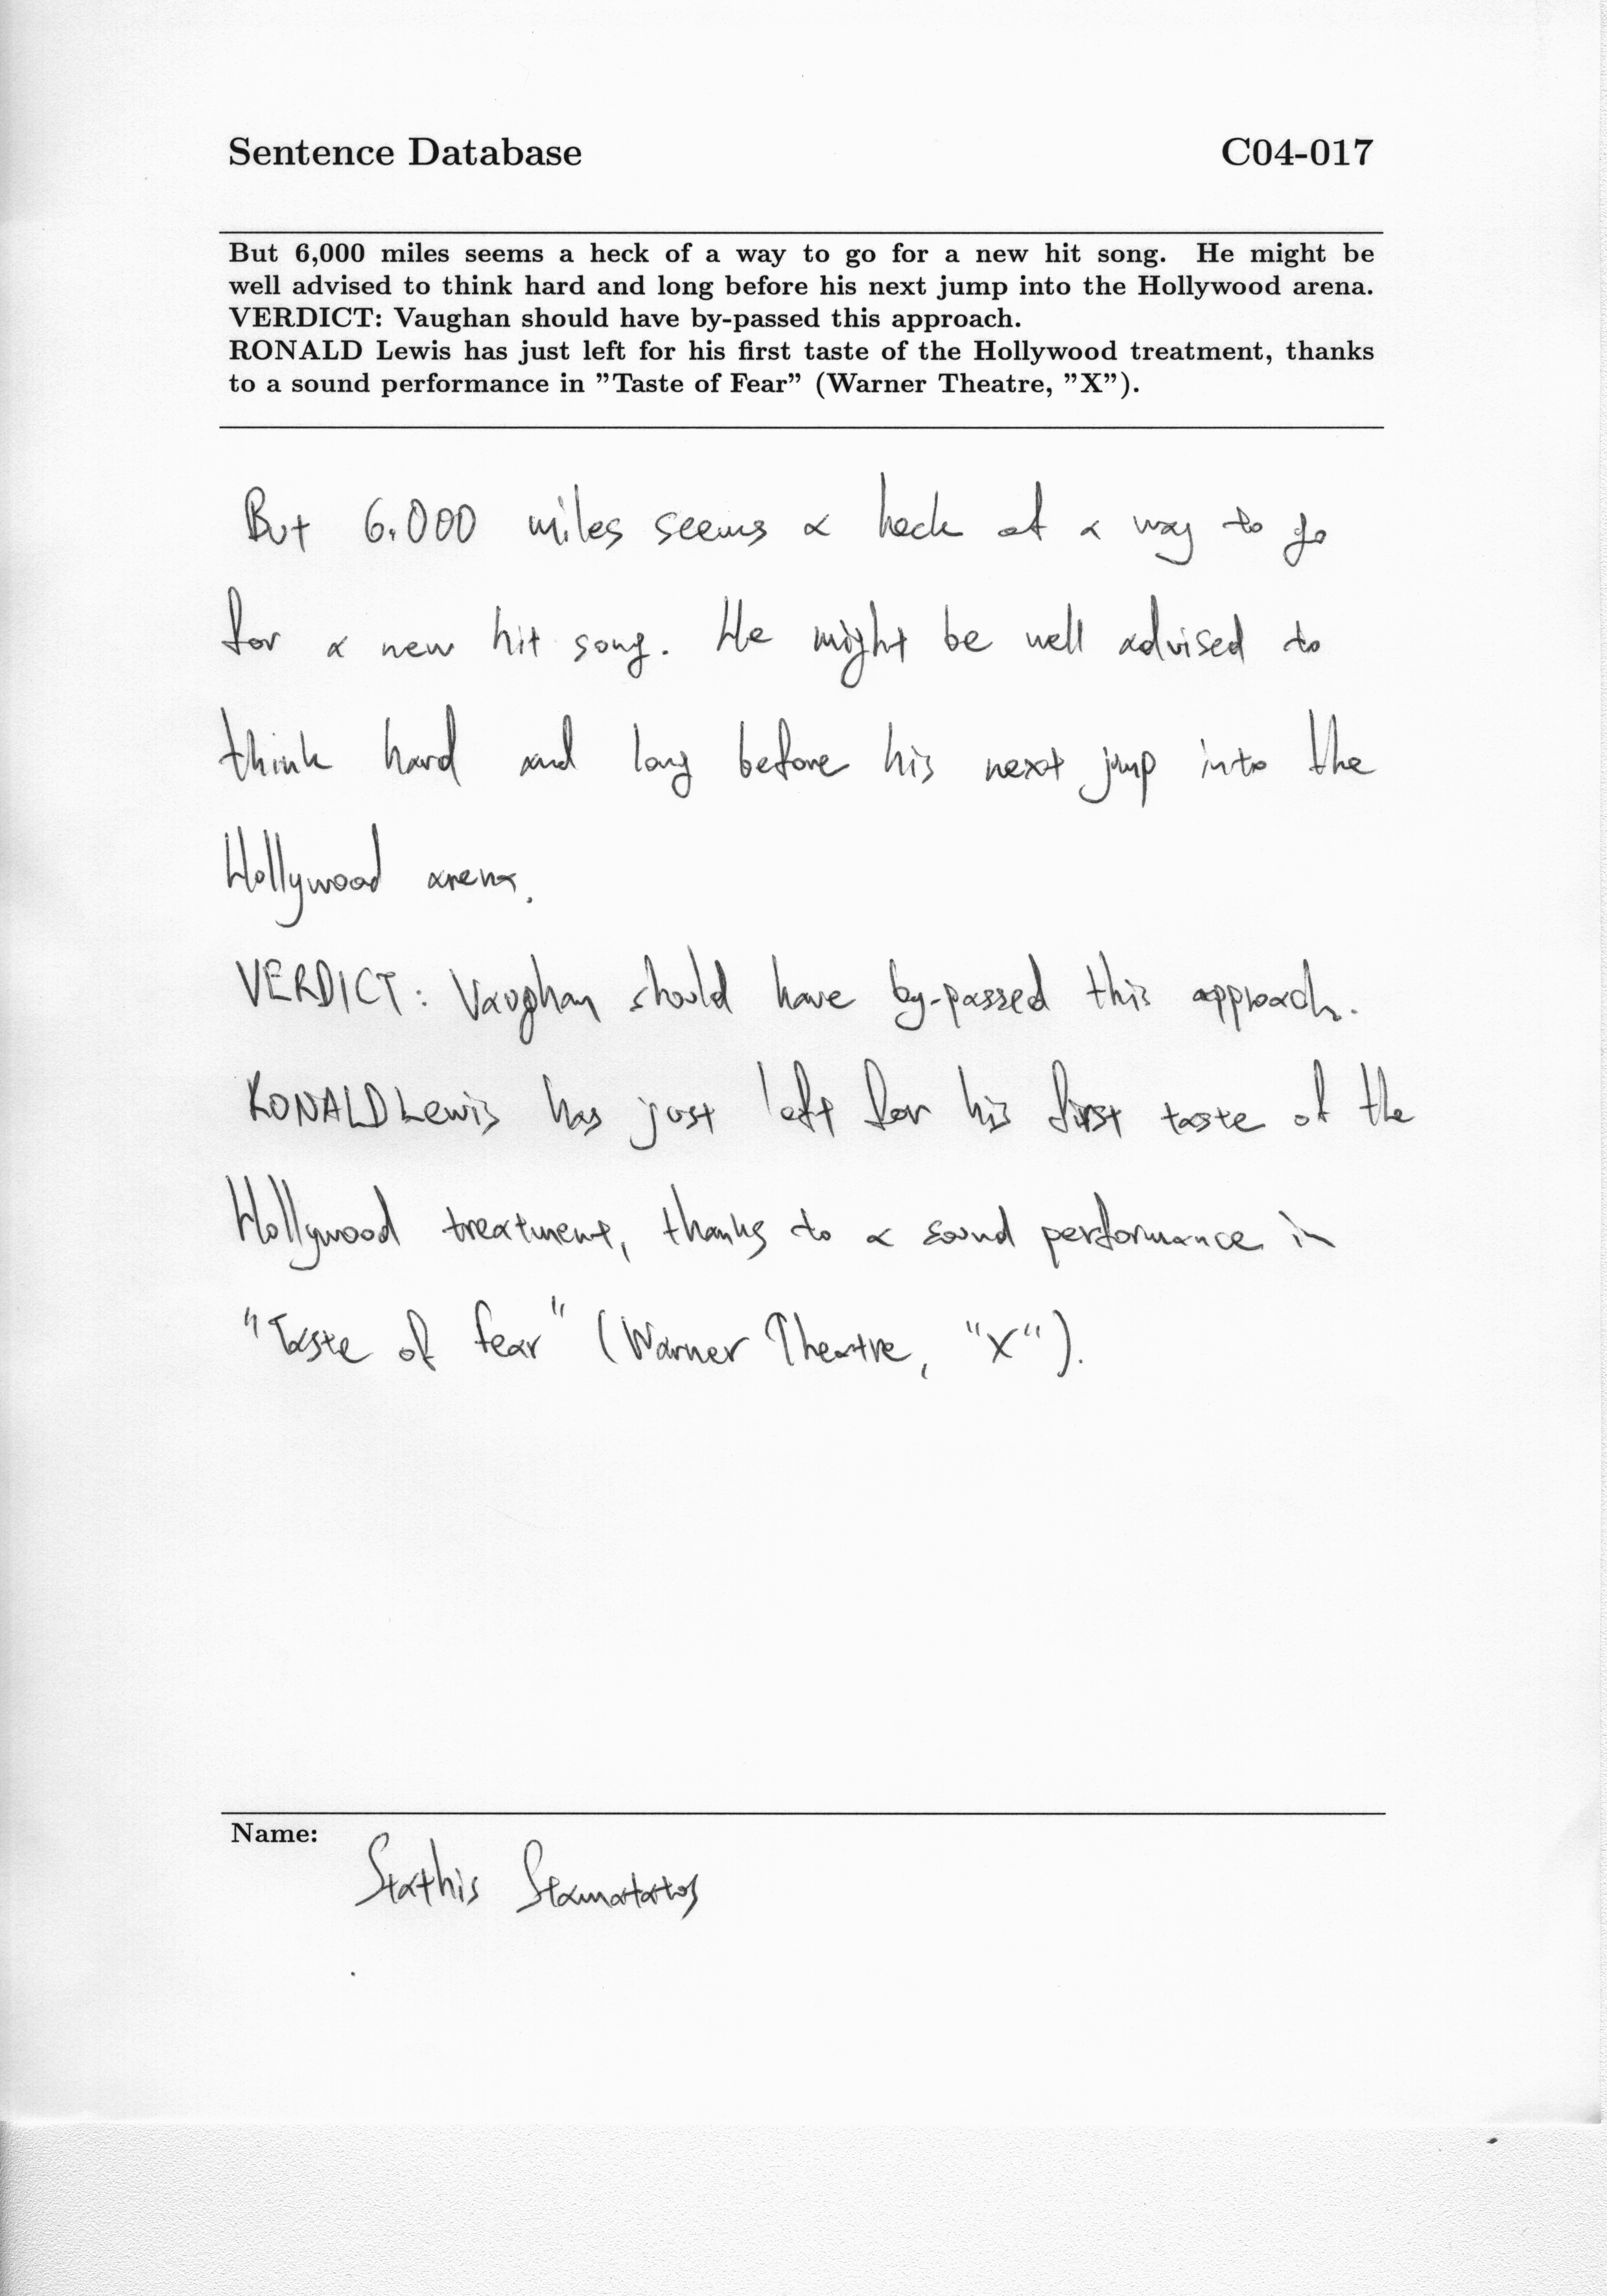 Sentence Database C04-017
But 6,000 miles seems a heck of a way to go for a new hit song. He might be
well advised to think hard and long before his next jump into the Hollywood arena.
VERDICT: Vaughan should have by-passed this approach.
RONALD Lewis has just left for his first taste of the Hollywood treatment, thanks
to a sound performance in ”Taste of Fear” (Warner Theatre, ”X”).
But 6,000 miles seems a heck of a way to go
for a new hit song. He might be well advised to
think hard and long before his next jump into the
Hollywood arena.
VERDICT: Vaughan should have by-passed this approach.
RONALD Lewis has just left for his first taste of the
Hollywood treatment, thanks to a sound performance in
"Taste of fear" (Warner Theatre, "X").
Name:
Stathis Stamatatos